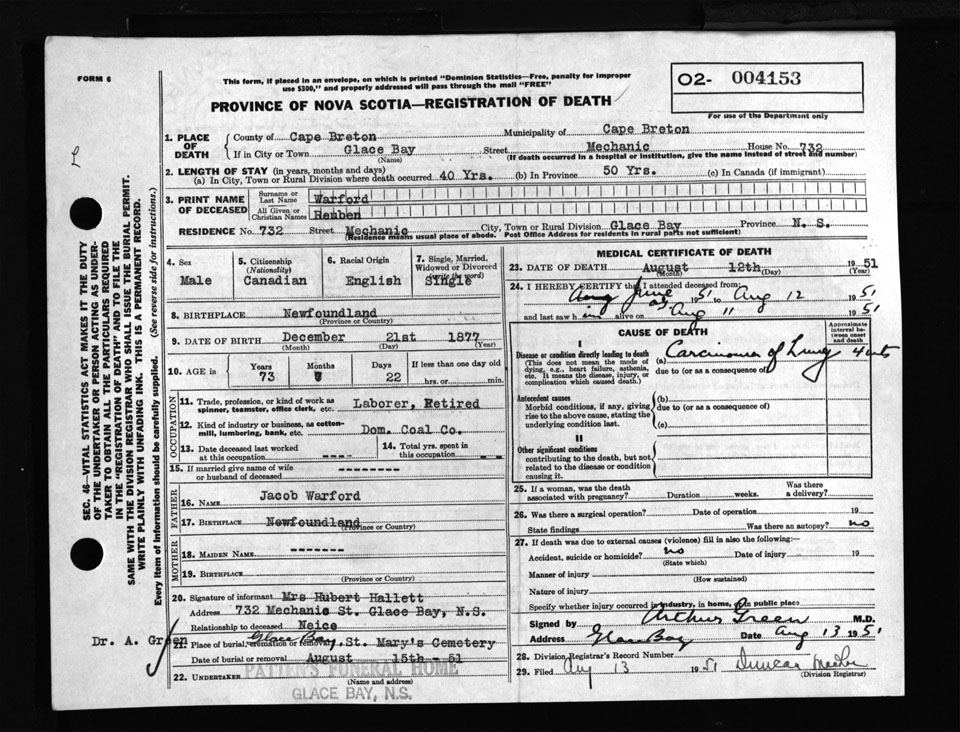 FORM 6
This form, if placed in an envelope, on which is printed "Dominion Statistics—Free, penalty for improper
use $300," and properly addressed will pass through the mail "FREE"
PROVINCE OF NOVA SCOTIA—REGISTRATION OF DEATH
02- 004153
For use of the Department only
L
1. PLACE OF DEATH
County of Cape Breton Municipality of Cape Breton
If in City or Town Glace Bay Street Mechanic House No. 732
(Name) (If death occurred in a hospital or institution, give the name instead of street and number)
2. LENGTH OF STAY (in years, months and days)
(a) In City, Town or Rural Division where death occurred 40 Yrs. (b) In Province 50 Yrs. (c) In Canada (if immigrant)
3. PRINT NAME OF DECEASED
Surname or Last Name Warford
All Given or Christian Names Reuben
RESIDENCE No. 732 Street Mechanic City, Town or Rural Division Glace Bay Province N. S.
(Residence means usual place of abode. Post Office Address for residents in rural parts not sufficient)
4. Sex
Male
5. Citizenship
(Nationality)
Canadian
6. Racial Origin
English
7. Single, Married, Widowed or Divorced
(write the word)
Single
8. BIRTHPLACE Newfoundland
(Province or Country)
9. DATE OF BIRTH December 21st 1877
(Month) (Day) (Year)
10. AGE in Years Months Days If less than one day old
73 22 hrs. or min.
OCCUPATION
11. Trade, profession, or kind of work as
spinner, teamster, office clerk, etc. Laborer, Retired
12. Kind of industry or business, as cotton-
mill, lumbering, bank, etc. Dom. Coal Co.
13. Date deceased last worked
at this occupation ----
14. Total yrs. spent in
this occupation -- --
15. If married give name of wife
or husband of deceased --------
FATHER
16. NAME Jacob Warford
17. BIRTHPLACE Newfoundland
(Province or Country)
MOTHER
18. MAIDEN NAME -------
19. BIRTHPLACE
(Province or Country)
20. Signature of informant Mrs Hubert Hallett
Address 732 Mechanic St. Glace Bay, N.S.
Relationship to deceased Neice
21. Place of burial, cremation or removal Glace Bay, St. Mary's Cemetery
Date of burial or removal August 15th - 51
22. UNDERTAKER
(Name and address)
FUNERAL HOME
GLACE BAY, N.S.
Dr. A. Green
MEDICAL CERTIFICATE OF DEATH
23. DATE OF DEATH August 12th 1951
(Month) (Day) (Year)
24. I HEREBY CERTIFY that I attended deceased from:
June 1951 to Aug 12 1951
and last saw him alive on Aug 11 1951
CAUSE OF DEATH
Approximate interval between onset and death
I
Disease or condition directly leading to death
(This does not mean the mode of
dying, e.g., heart failure, asthenia,
etc. It means the disease, injury, or
complication which caused death.)
(a) Carcinoma of Lung
due to (or as a consequence of)
Antecedent causes
Morbid conditions, if any, giving
rise to the above cause, stating the
underlying condition last.
(b)
due to (or as a consequence of)
(c)
II
Other significant conditions
contributing to the death, but not
related to the disease or condition
causing it.
25. If a woman, was the death
associated with pregnancy? Duration weeks. Was there a delivery?
26. Was there a surgical operation? Date of operation 19
State findings Was there an autopsy? no
27. If death was due to external causes (violence) fill in also the following:—
Accident, suicide or homicide? no Date of injury 19
(State which)
Manner of injury
(How sustained)
Nature of injury
Specify whether injury occurred in industry, in home, or in public place
Signed by Arthur Green M.D.
Address Glace Bay Date Aug 13 1951
28. Division Registrar's Record Number
29. Filed Aug 13 1951 Duncan
(Division Registrar)
SEC. 46—VITAL STATISTICS ACT MAKES IT THE DUTY
OF THE UNDERTAKER OR PERSON ACTING AS UNDER-
TAKER TO OBTAIN ALL THE PARTICULARS REQUIRED
IN THE "REGISTRATION OF DEATH" AND TO FILE THE
SAME WITH THE DIVISION REGISTRAR WHO SHALL ISSUE THE BURIAL PERMIT.
WRITE PLAINLY WITH UNFADING INK. THIS IS A PERMANENT RECORD.
Every item of Information should be carefully supplied. (See reverse side for instructions.)